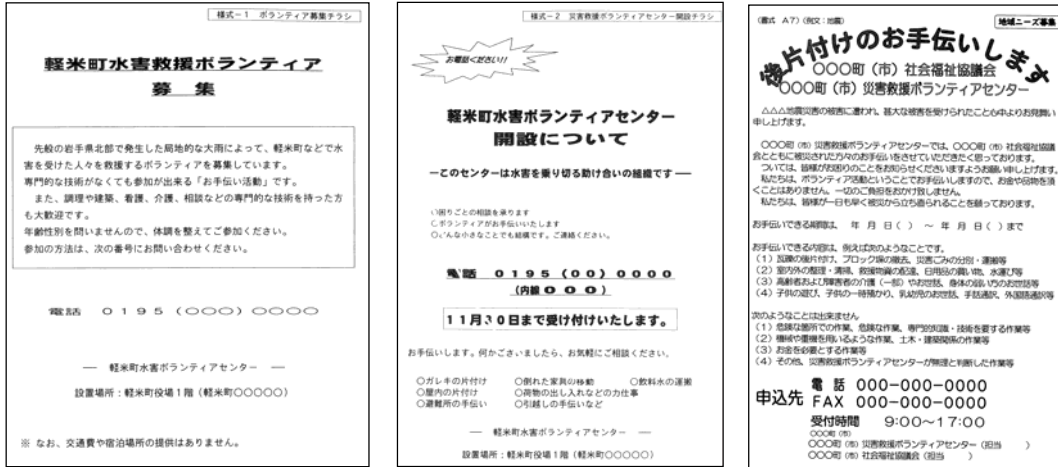 様式－１ ボランティア募集チラシ
軽米町水害救援ボランティア
募 集
先般の岩手県北部で発生した局地的な大雨によって、軽米町などで水
害を受けた人々を救援するボランティアを募集しています。
専門的な技術がなくても参加が出来る「お手伝い活動」です。
また、調理や建築、看護、介護、相談などの専門的な技術を持った方
も大歓迎です。
年齢性別を問いませんので、体調を整えてご参加ください。
参加の方法は、次の番号にお問い合わせください。
電話 ０１９５（〇〇〇）〇〇〇〇
― 軽米町水害ボランティアセンター ―
設置場所：軽米町役場１階（軽米町〇〇〇〇〇）
※ なお、交通費や宿泊場所の提供はありません。
様式－２ 災害救援ボランティアセンター開設チラシ
お電話ください!!
軽米町水害ボランティアセンター
開設について
―このセンターは水害を乗り切る助け合いの組織です―
〇困りごとの相談を承ります
〇ボランティアがお手伝いいたします
〇どんな小さなことでも結構です。ご連絡ください。
電話 ０１９５（００）００００
（内線０００）
１１月３０日まで受け付けいたします。
お手伝いします。何かございましたら、お気軽にご相談ください。
〇ガレキの片付け 〇倒れた家具の移動 〇飲料水の運搬
〇屋内の片付け 〇荷物の出し入れなどの力仕事
〇避難所の手伝い 〇引越しの手伝いなど
― 軽米町水害ボランティアセンター ―
設置場所：軽米町役場１階（軽米町〇〇〇〇〇）
（書式 Ａ７）（例文：地震） 地域ニーズ募集
後片付けのお手伝いします
〇〇〇町（市）社会福祉協議会
〇〇〇町（市）災害救援ボランティアセンター
△△△地震災害の被害に遭われ、甚大な被害を受けられたこと心中よりお見舞い
申し上げます。
〇〇〇町（市）災害救援ボランティアセンターでは、〇〇〇町（市）社会福祉協議
会とともに被災された方々のお手伝いをさせていただきたく思っております。
ついては、皆様がお困りのことをお知らせくださいますようお願い申し上げます。
私たちは、ボランティア活動ということでお手伝いしますので、お金や品物を頂
くことはありません。一切のご負担をおかけ致しません。
私たちは、皆様が一日も早く被災から立ち直られることを願っております。
お手伝いできる期間は、 年 月 日（ ）～ 年 月 日（ ）まで
お手伝いできる内容は、例えば次のようなことです。
（１）瓦礫の後片付け、ブロック塀の撤去、災害ごみの分別・運搬等
（２）室内外の整理・清掃、救援物資の配達、日用品の買い物、水運び等
（３）高齢者および障害者の介護（一部）やお世話、身体の弱い方のお世話等
（４）子供の遊び、子供の一時預かり、乳幼児のお世話、手話通訳、外国語通訳等
次のようなことは出来ません
（１）危険な箇所での作業、危険な作業、専門的知識・技術を要する作業等
（２）機械や重機を用いるような作業、土木・建築関係の作業等
（３）お金を必要とする作業等
（４）その他、災害救援ボランティアセンターが無理と判断した作業等
申込先 電 話 000-000-0000
FAX 000-000-0000
受付時間 9:00～17:00
〇〇〇町（市）
〇〇〇町（市）災害救援ボランティアセンター（担当 ）
〇〇〇町（市）社会福祉協議会（担当 ）